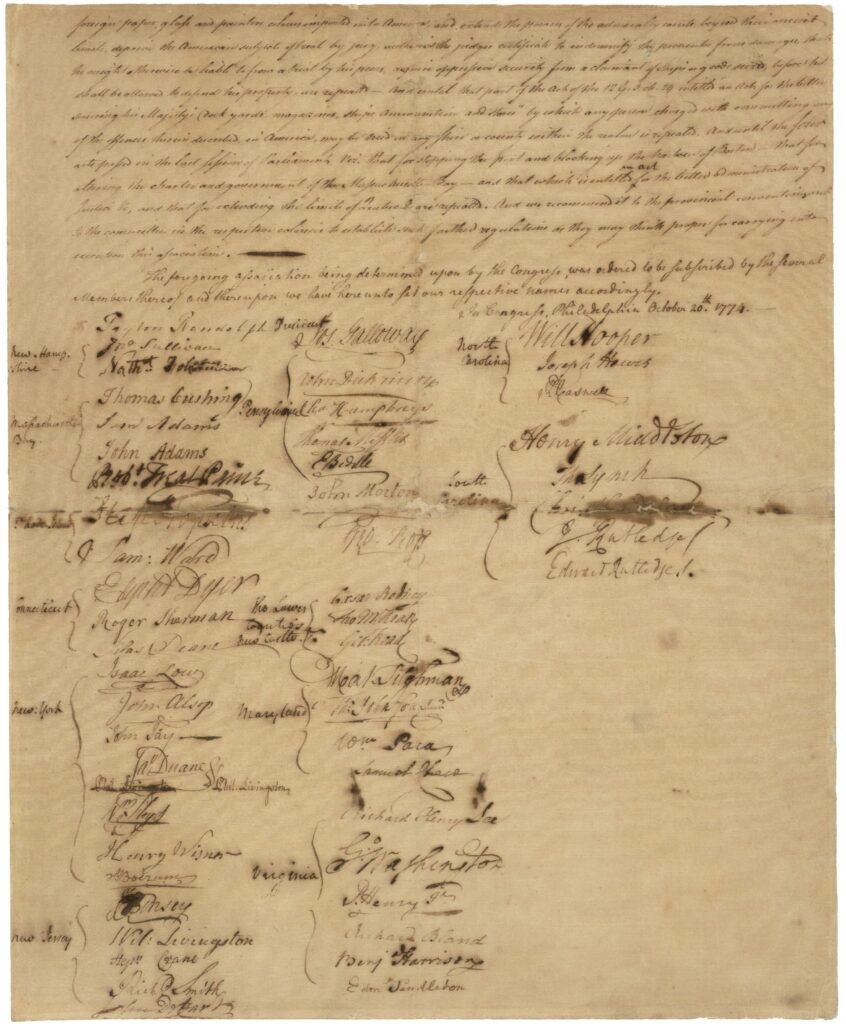 foreign paper, glass and painters colours imported into America, and extend the powers of the admiralty courts beyond their ancient
limits, deprive the American subject of trial by jury, authorize the judges certificate to indemnify the prosecutor from damages, that
he might otherwise be liable to from a trial by his peers, require oppressive security from a claimant of ships or goods seized, before he
shall be allowed to defend his property, are repealed — And until that part of the Act of the 12 G. 3. ch. 24 entitled an Act for the better
securing his Majesty's dock yards magazines, ships Ammunition and stores" by which any person charged with committing any
of the offences therein described, in America, may be tried in any shire or county within the realm is repealed. And until the four
acts passed in the last session of Parliament, Viz. that for stopping the port and blocking up the harbour of Boston — that for
altering the charter and government of the Massachusetts-Bay — and that which is entitled an act for the better administration of
Justice &c, and that for extending the limits of Quebec &c are repealed. And we recommend it to the provincial conventions, and
to the committees in the respective colonies to establish such farther regulations as they may think proper for carrying into
execution this association.
The foregoing association being determined upon by the Congress, was ordered to be subscribed by the several
Members thereof and thereupon we have hereunto set our respective names accordingly.
In Congress, Philadelphia October 20.th 1774.
Peyton Randolph President
New-Hamp-
shire
Jno Sullivan
Nath.l Folsom
Massachusetts
Bay
Thomas Cushing
Sam Adams
John Adams
Rob.t Treat Paine
Step Hopkins
Sam: Ward
Connecticut
Elipht Dyer
Roger Sherman
Silas Deane
New-York
Isaac Low
John Alsop
John Jay
Jas Duane
Phil. Livingston
Phil. Livingston
Wm Floyd
Henry Wisner
S: Boerum
New Jersey
J. Kinsey
Wil: Livingston
Stepn Crane
Richd Smith
John De Hart
Pensylvania
Jos. Galloway
John Dickinson
Cha Humphreys
Thomas Mifflin
E Biddle
John Morton
Geo: Ross
the Lower
Counties
New Castle &c
Cæsar Rodney
Tho M:Kean
Geo Read
Maryland
Mat Tilghman
Ths Johnson Junr
Wm Paca
Samuel Chase
Virginia
Richard Henry Lee
Go Washington
P. Henry Jr
Richard Bland
Benj Harrison
Edmd Pendleton
North
Carolina
Will Hooper
Joseph Hewes
Rd Caswell
South
Carolina
Henry Middleton
Tho Lynch
Christ Gadsden
J. Rutledge
Edward Rutledge